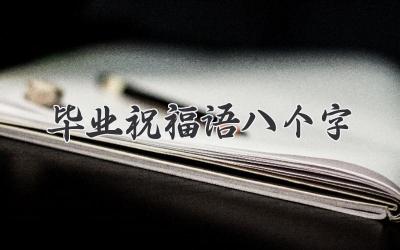 毕业祝福语八个字